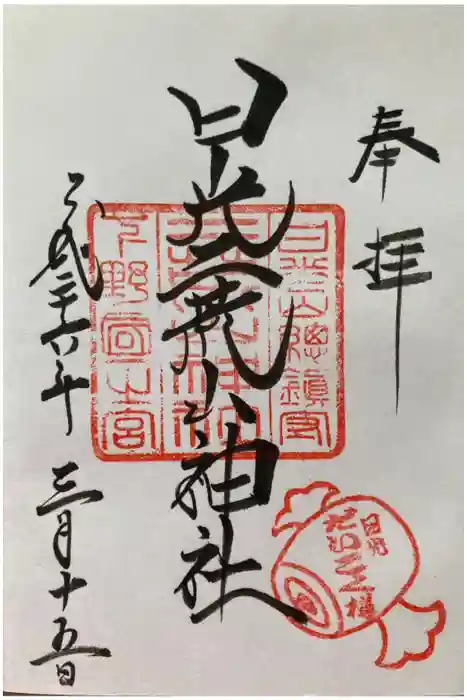 奉拝
日光二荒山神社
平成二十六年三月十五日
日光山總鎮守
二荒山神社
下野國一之宮
日光
だいこく様